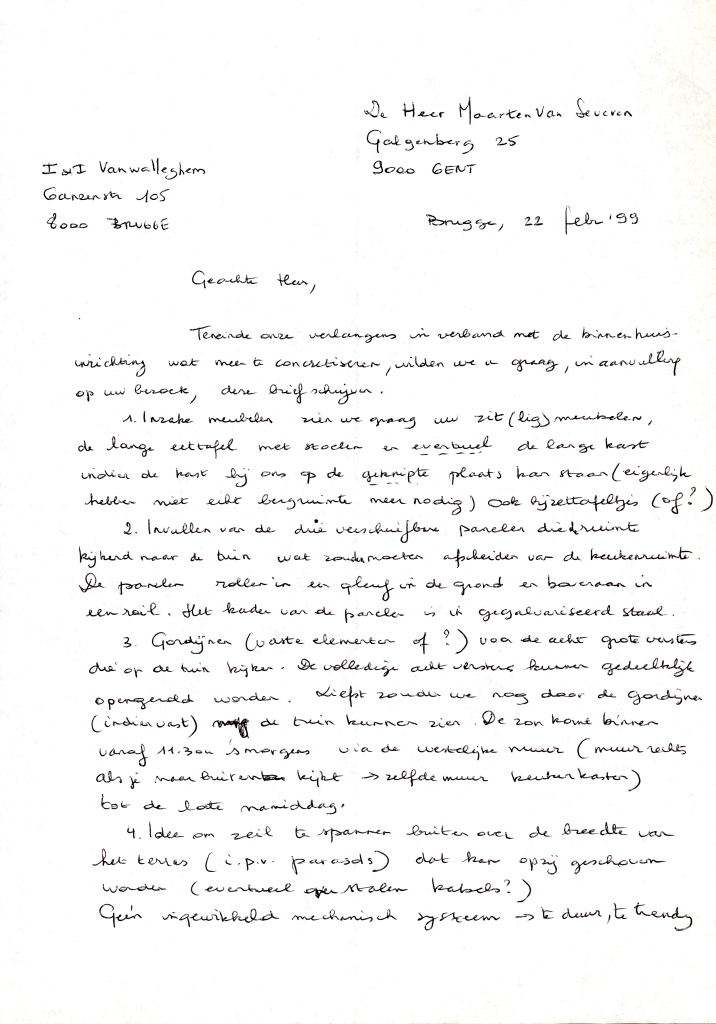 De Heer Maarten Van Severen
Galgenberg 25
9000 GENT
I & I Vanwalleghem
Ganzenstr 105
8000 BRUGGE
Brugge, 22 febr '99
Geachte Heer,
Teneinde onze verlangens in verband met de binnenhuis-
inrichting wat meer te concretiseren, wilden we u graag, in aanvulling
op uw bezoek, deze brief schrijven.
1. Inzake meubelen zien we graag uw zit(lig)meubelen,
de lange eettafel met stoelen en eventueel de lange kast
indien de kast bij ons op de geknipte plaats kan staan (eigenlijk
hebben niet echt bergruimte meer nodig) Ook bijzettafeltjes (of?)
2. Invullen van de drie verschuifbare panelen die de ruimte
kijkend naar de tuin wat zouden moeten afscheiden van de keukenruimte.
De panelen rollen in een gleuf in de grond en bovenaan in
een rail. Het kader van de panelen is in gegalvaniseerd staal.
3. Gordijnen (vaste elementen of?) voor de acht grote vensters
die op de tuin kijken. De volledige acht vensters kunnen gedeeltelijk
opengerold worden. Liefst zouden we nog door de gordijnen
(indien vast) de tuin kunnen zien. De zon komt binnen
vanaf 11.30u 's morgens via de westelijke muur (muur rechts
als je naar buiten kijkt → zelfde muur keukenkasten)
tot de late namiddag.
4. Idee om zeil te spannen buiten over de breedte van
het terras (i.p.v. parasols) dat kan opzij geschoven
worden (eventueel stalen kabels?)
Geén ingewikkeld mechanisch systeem → te duur, te trendy